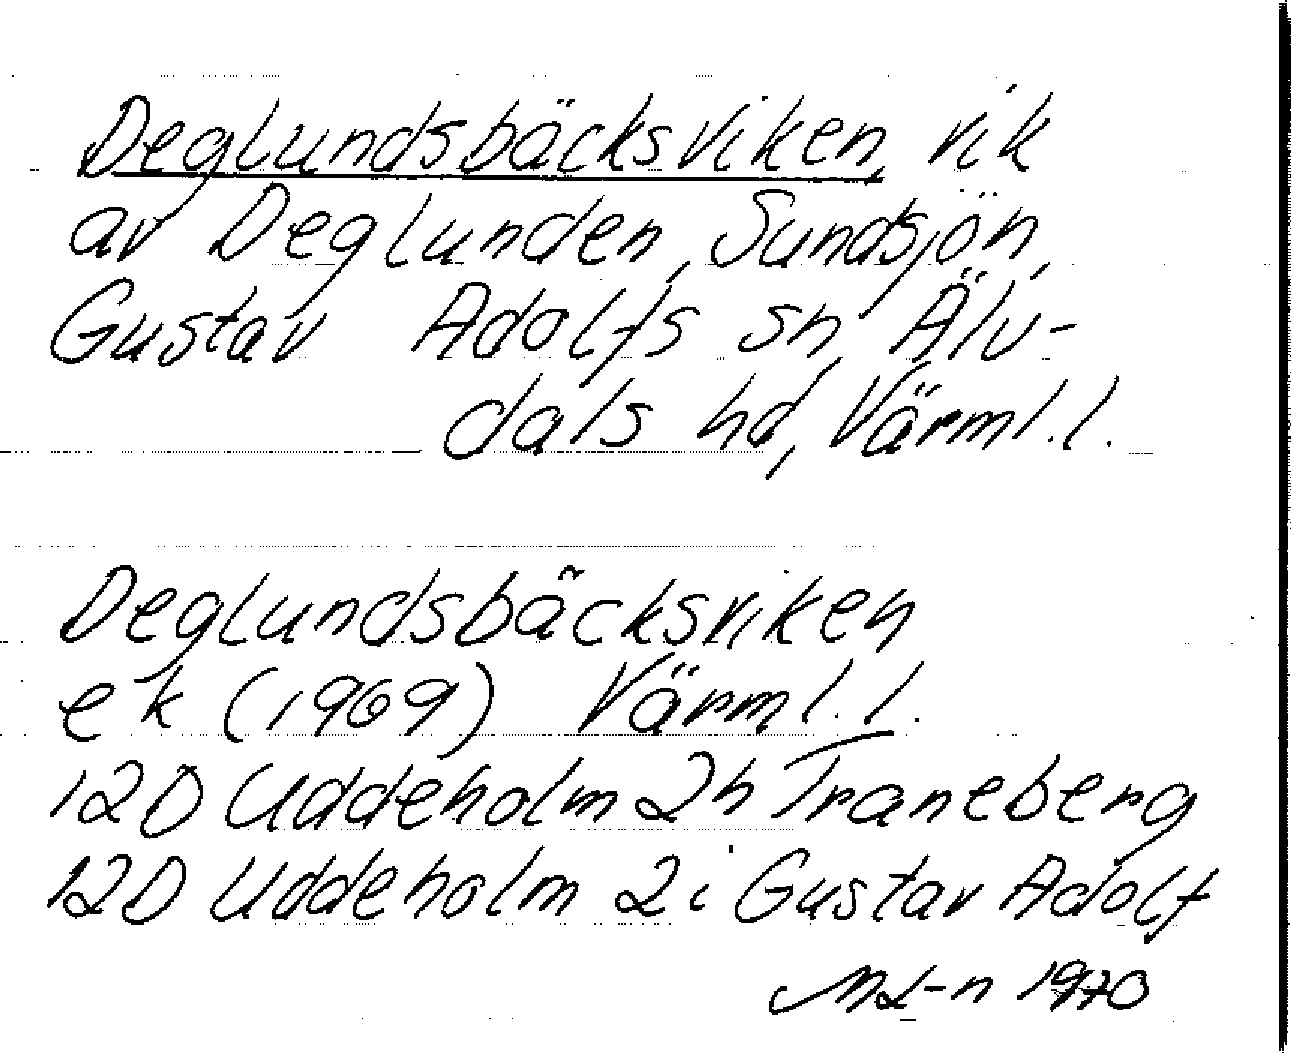 Deglundsbäcksviken, vik
av Deglunden, Sundsjön,
Gustav Adolfs sn, Älv-
dals hd, Värml. l.
Deglundsbäcksviken
ek (1969) Värml. l.
12D Uddeholm 2h Traneberg
12D Uddeholm 2i Gustav Adolf
ML-n 1970